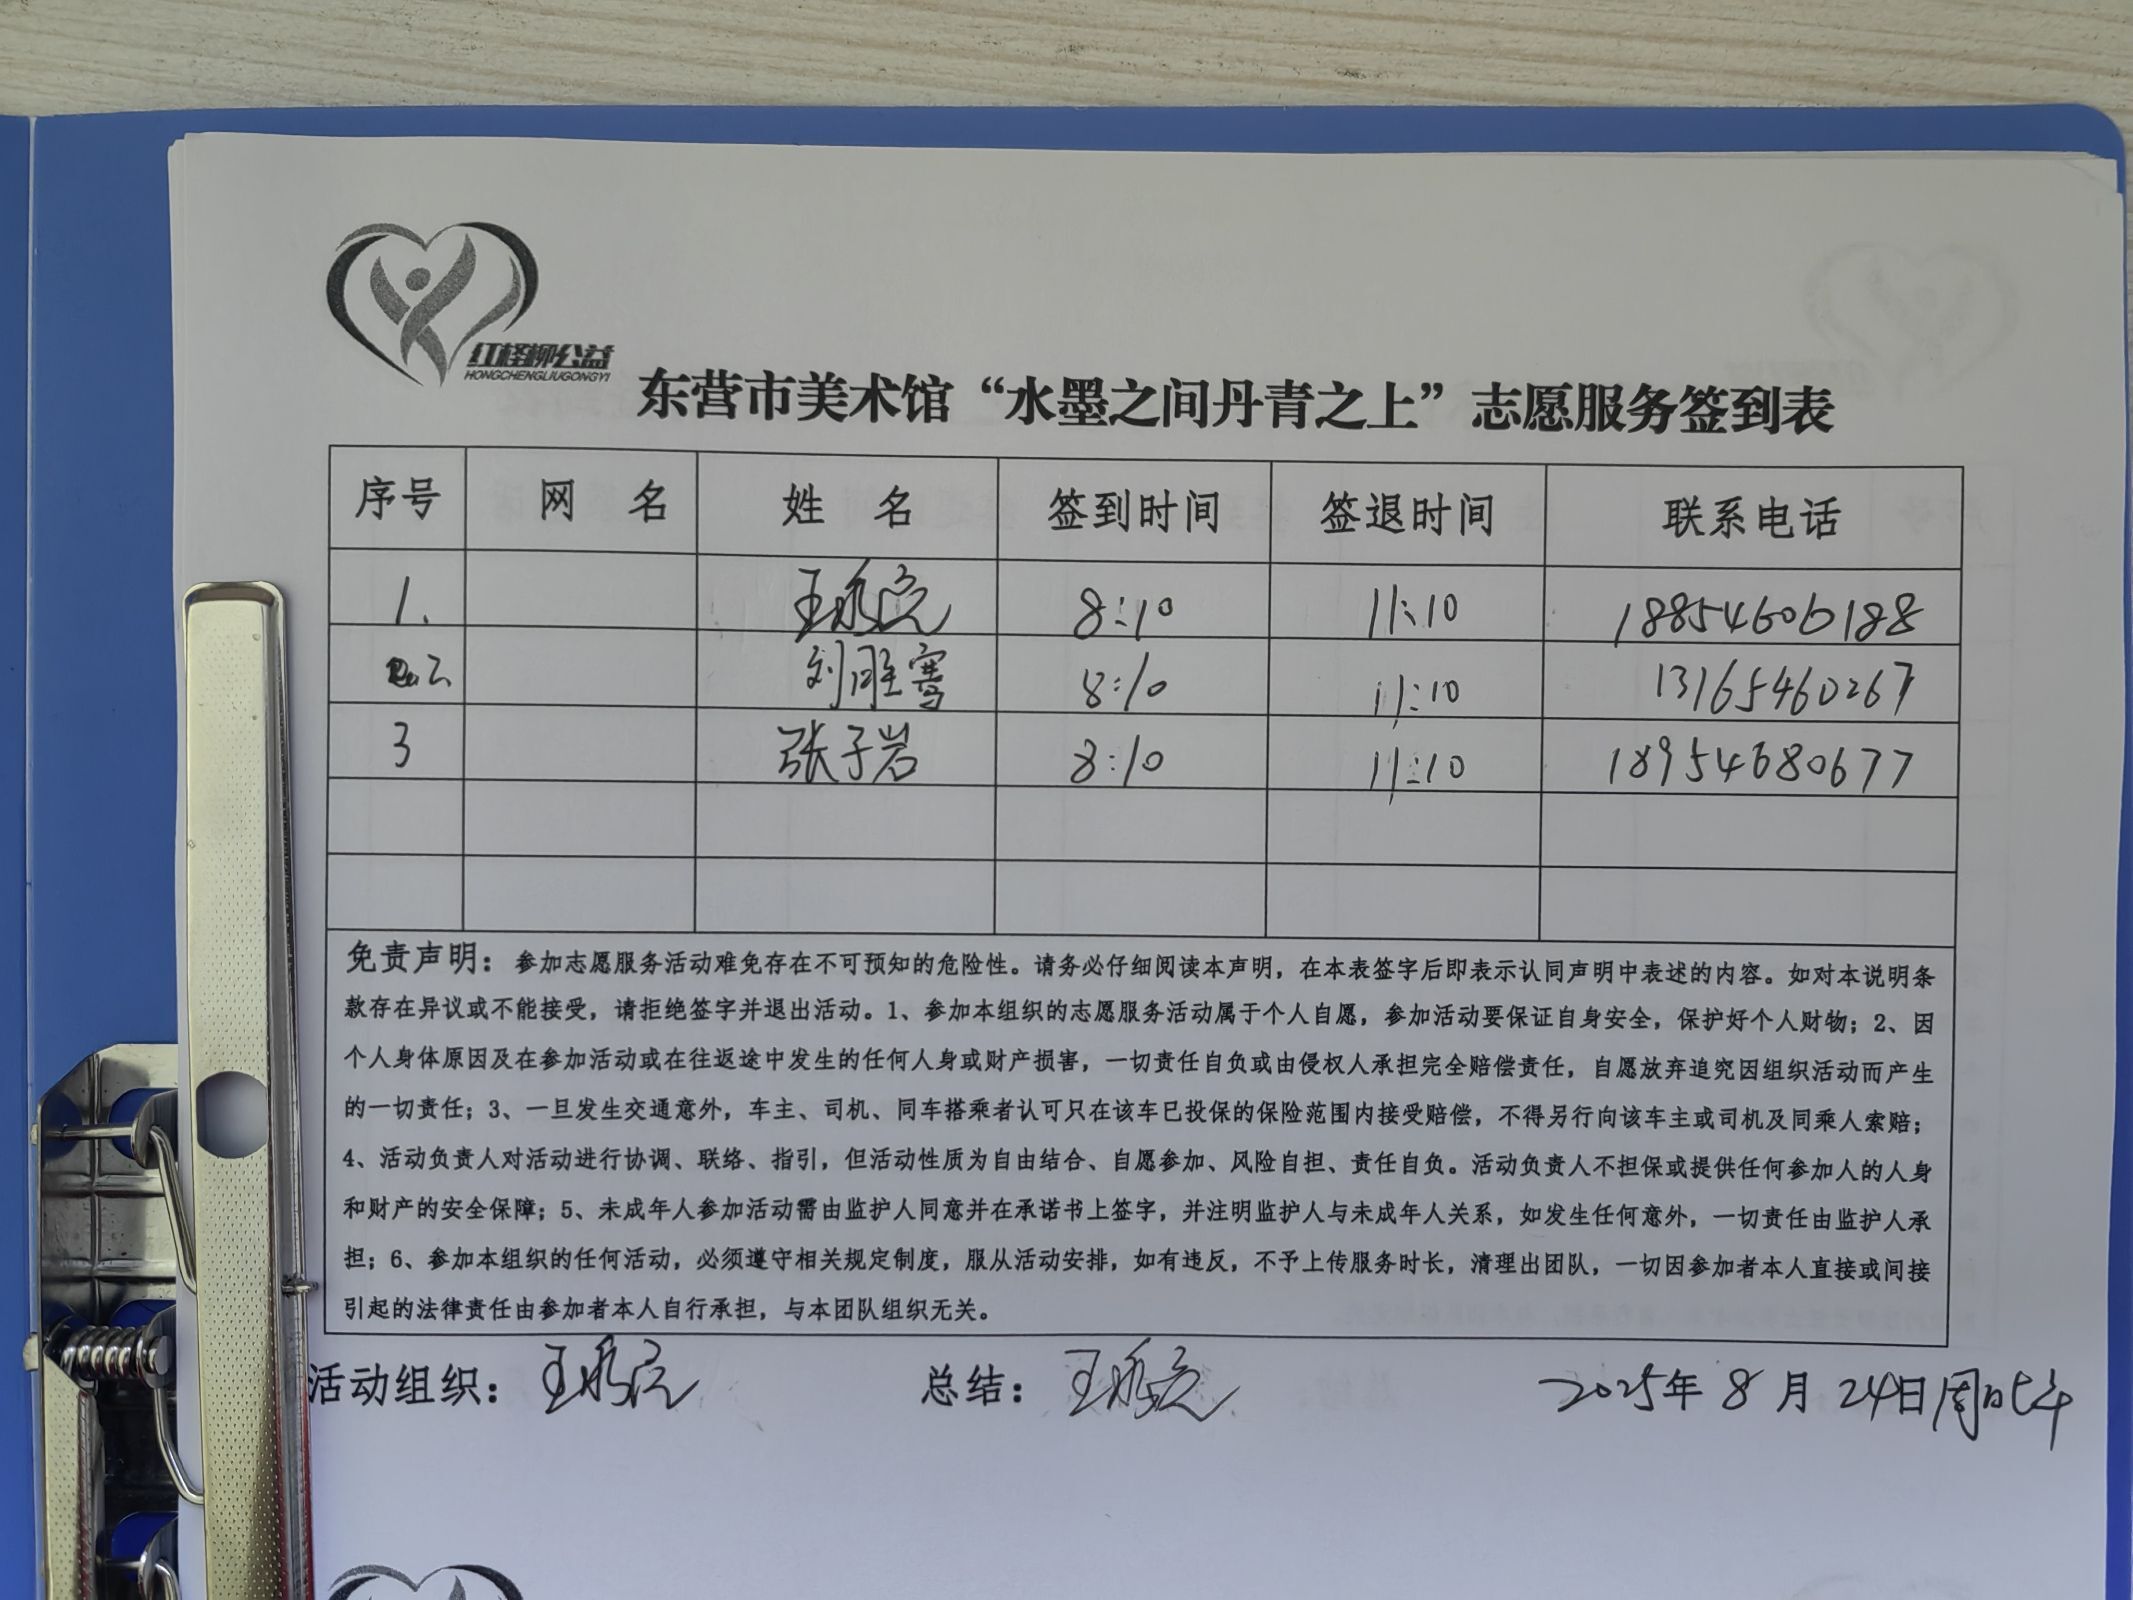 红柽柳公益
HONGCHENGLIUGONGYI
东营市美术馆“水墨之间丹青之上”志愿服务签到表
序号 网 名 姓 名 签到时间 签退时间 联系电话
1. 王 8:10 11:10 18854606188
2 刘雪 8:10 11:10 13165460267
3 张子岩 8:10 11:10 18954680677
免责声明：参加志愿服务活动难免存在不可预知的危险性。请务必仔细阅读本声明，在本表签字后即表示认同声明中表述的内容。如对本说明条
款存在异议或不能接受，请拒绝签字并退出活动。1、参加本组织的志愿服务活动属于个人自愿，参加活动要保证自身安全，保护好个人财物；2、因
个人身体原因及在参加活动或在往返途中发生的任何人身或财产损害，一切责任自负或由侵权人承担完全赔偿责任，自愿放弃追究因组织活动而产生
的一切责任；3、一旦发生交通意外，车主、司机、同车搭乘者认可只在该车已投保的保险范围内接受赔偿，不得另行向该车主或司机及同乘人索赔；
4、活动负责人对活动进行协调、联络、指引，但活动性质为自由结合、自愿参加、风险自担、责任自负。活动负责人不担保或提供任何参加人的人身
和财产的安全保障；5、未成年人参加活动需由监护人同意并在承诺书上签字，并注明监护人与未成年人关系，如发生任何意外，一切责任由监护人承
担；6、参加本组织的任何活动，必须遵守相关规定制度，服从活动安排，如有违反，不予上传服务时长，清理出团队，一切因参加者本人直接或间接
引起的法律责任由参加者本人自行承担，与本团队组织无关。
活动组织：王 总结：王 2025年 8 月 24日周日上午